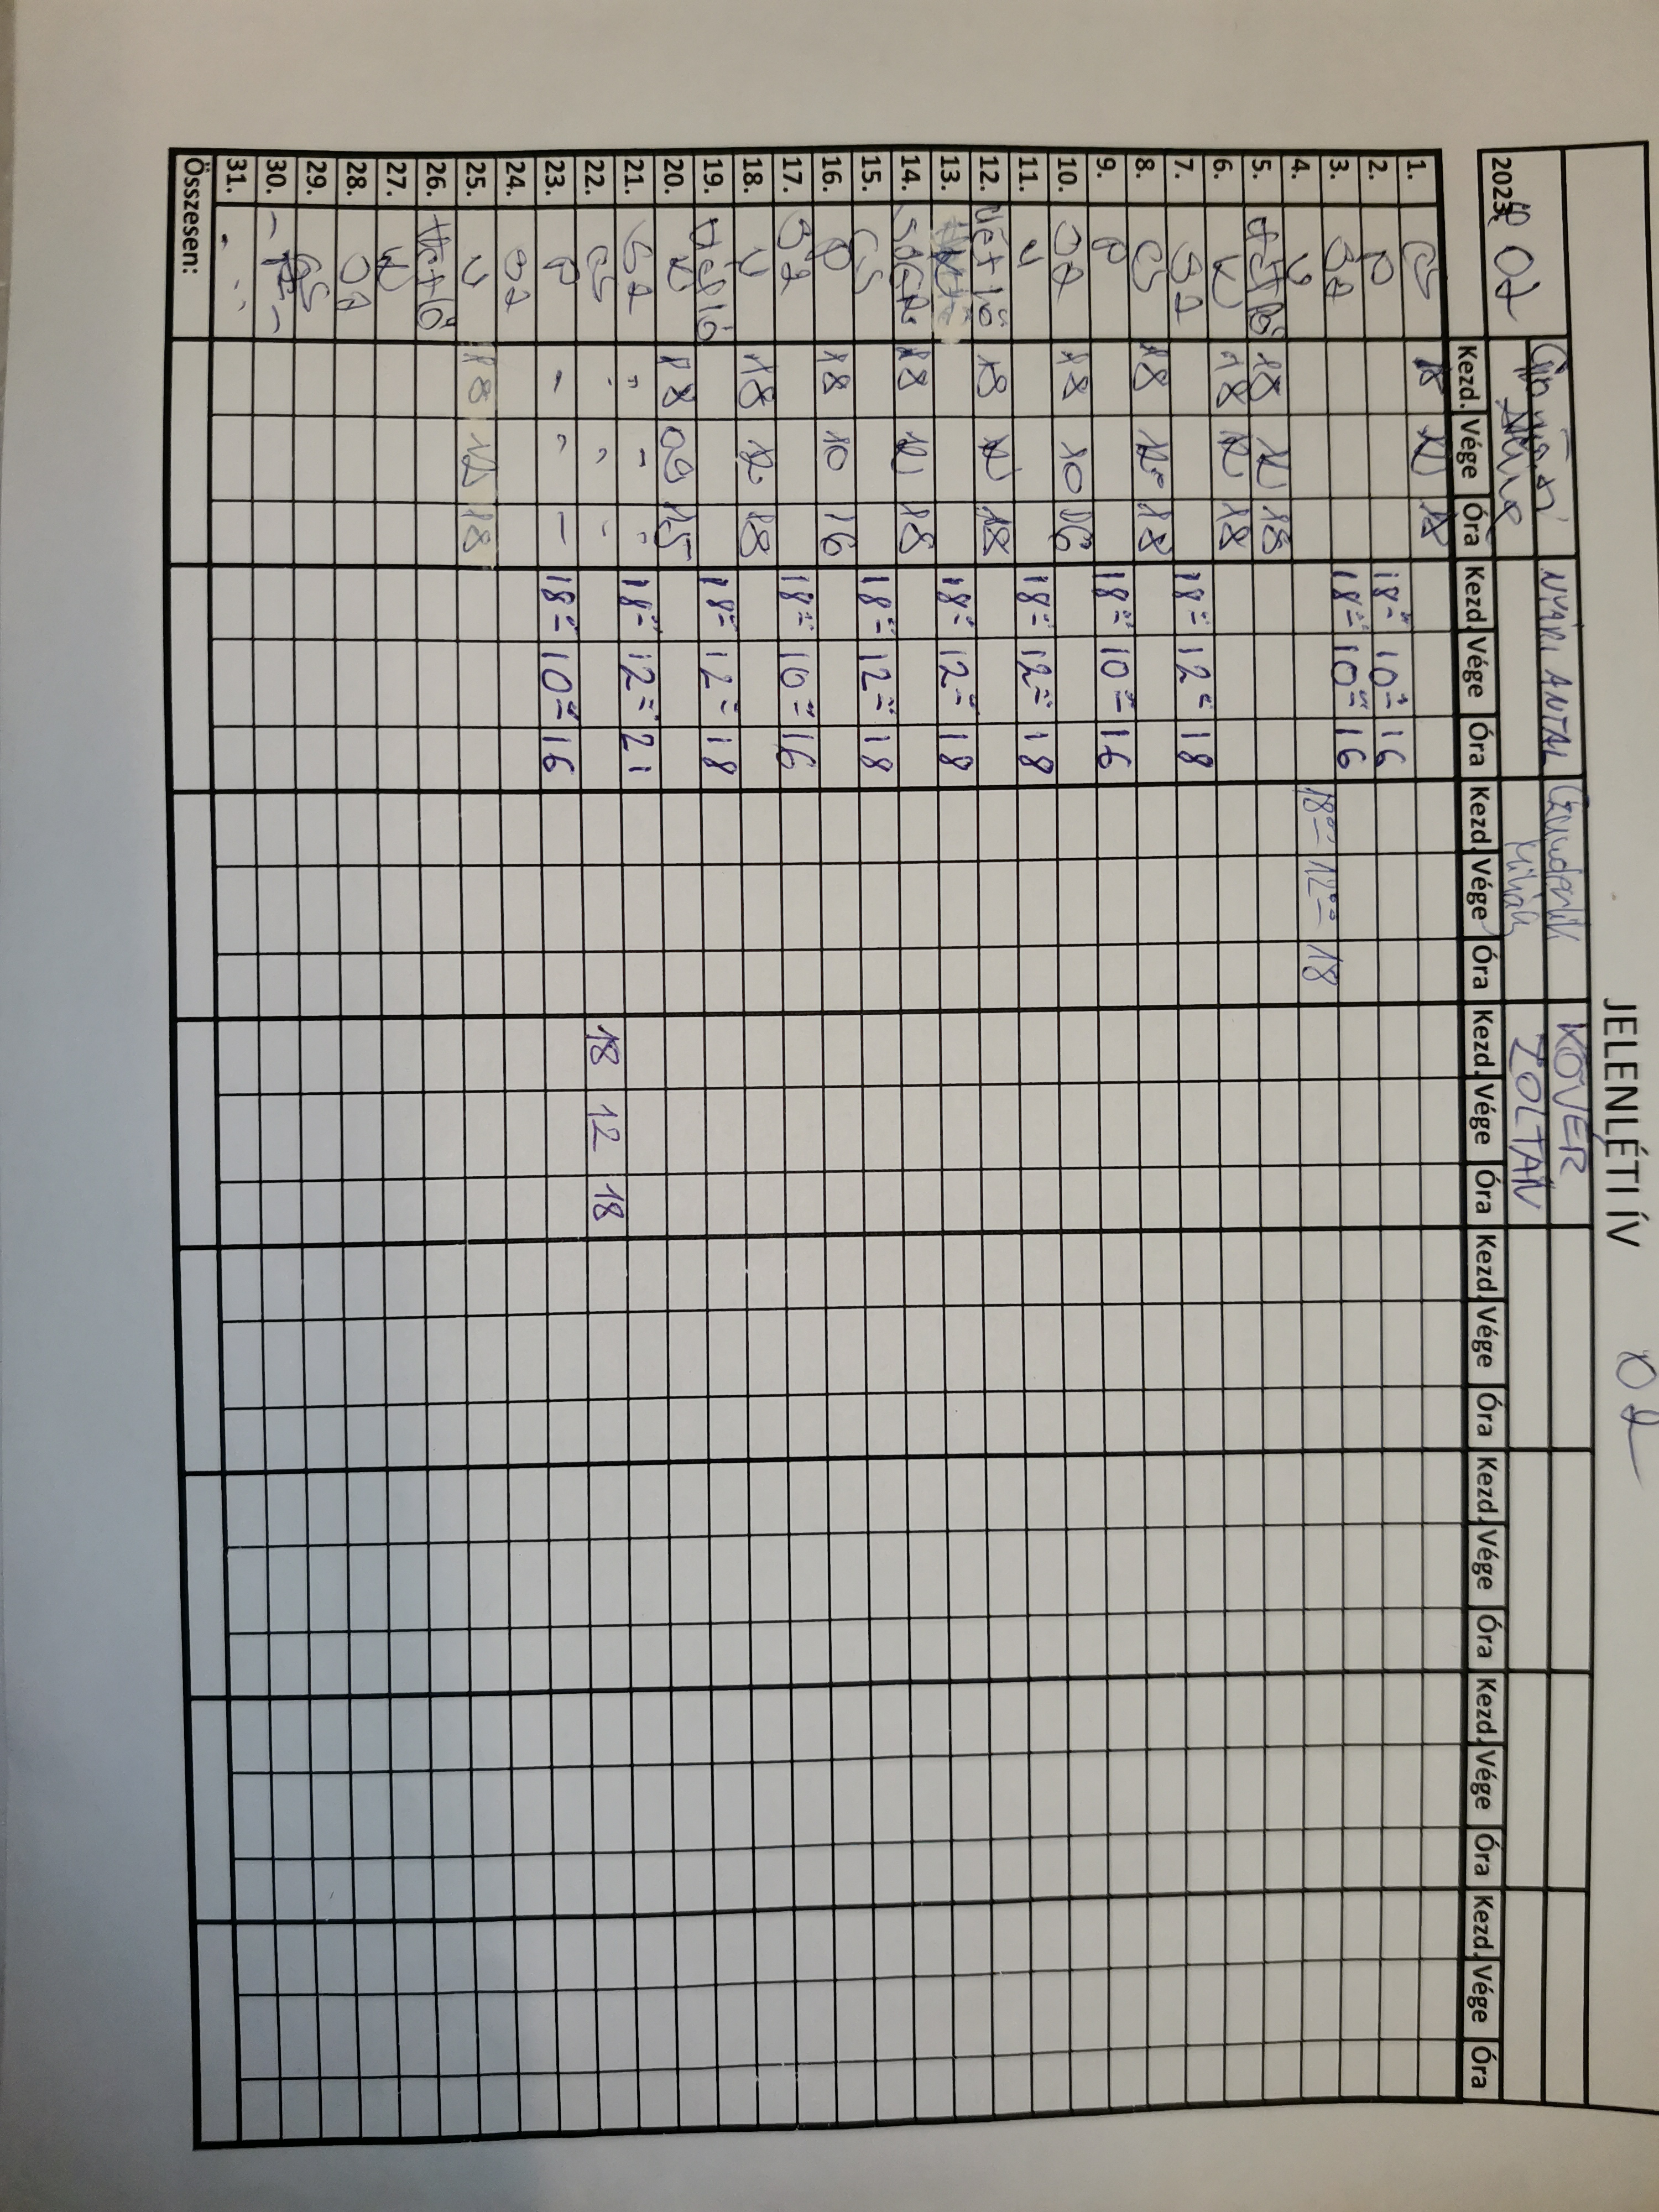 JELENLÉTI ÍV 02
2023. 02 NYÁRI ANTAL KÖVÉR ZOLTÁN
Kezd. Vége Óra Kezd. Vége Óra Kezd. Vége Óra Kezd. Vége Óra Kezd. Vége Óra Kezd. Vége Óra Kezd. Vége Óra Kezd. Vége Óra
1. CS 18 12 18
2. P 18 00 10 00 16
3. SZ 18 00 10 00 16
4. V 18 00 12 00 18
5. Hétfő 18 12 18
6. K 18 12 18
7. SZ 18 00 12 00 18
8. CS 18 12 18
9. P 18 00 10 00 16
10. SZ 18 10 16
11. V 18 00 12 00 18
12. Hétfő 18 12 18
13. 18 00 12 00 18
14. 18 12 18
15. CS 18 00 12 00 18
16. P 18 10 16
17. SZ 18 00 10 00 16
18. V 18 12 18
19. Hétfő 18 00 12 00 18
20. K 18 09 15
21. SZ 18 00 12 00 21
22. CS 18 12 18
23. P 18 00 10 00 16
24. SZ
25. V 18 12 18
26. Hétfő
27. K
28. SZ
29. CS
30.
31.
Összesen: